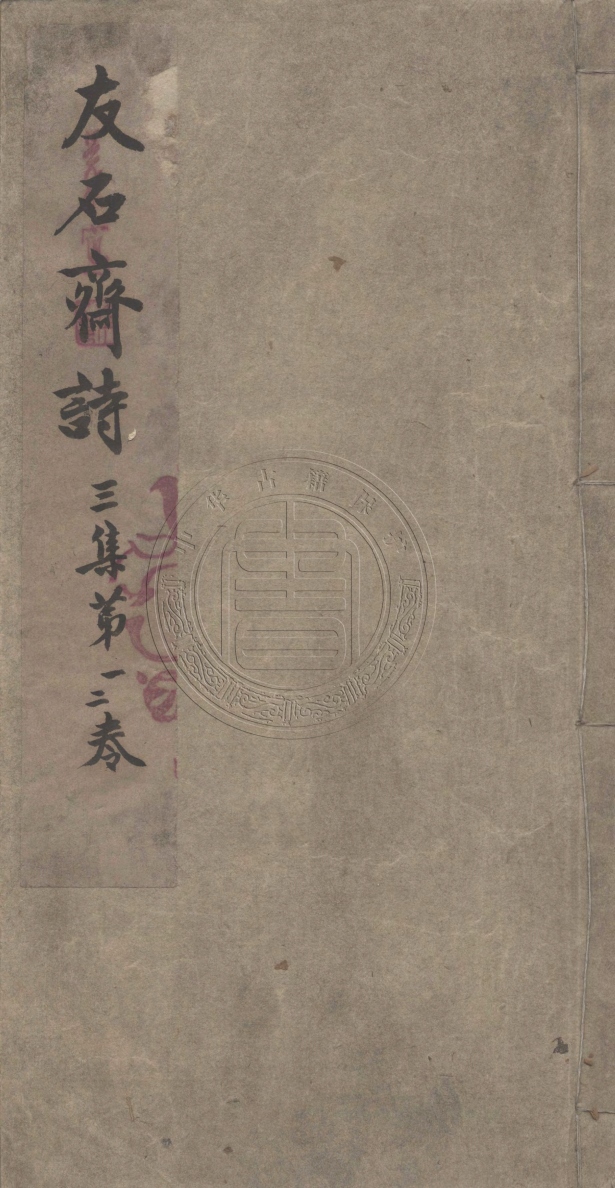 友石齋詩三集第一二卷